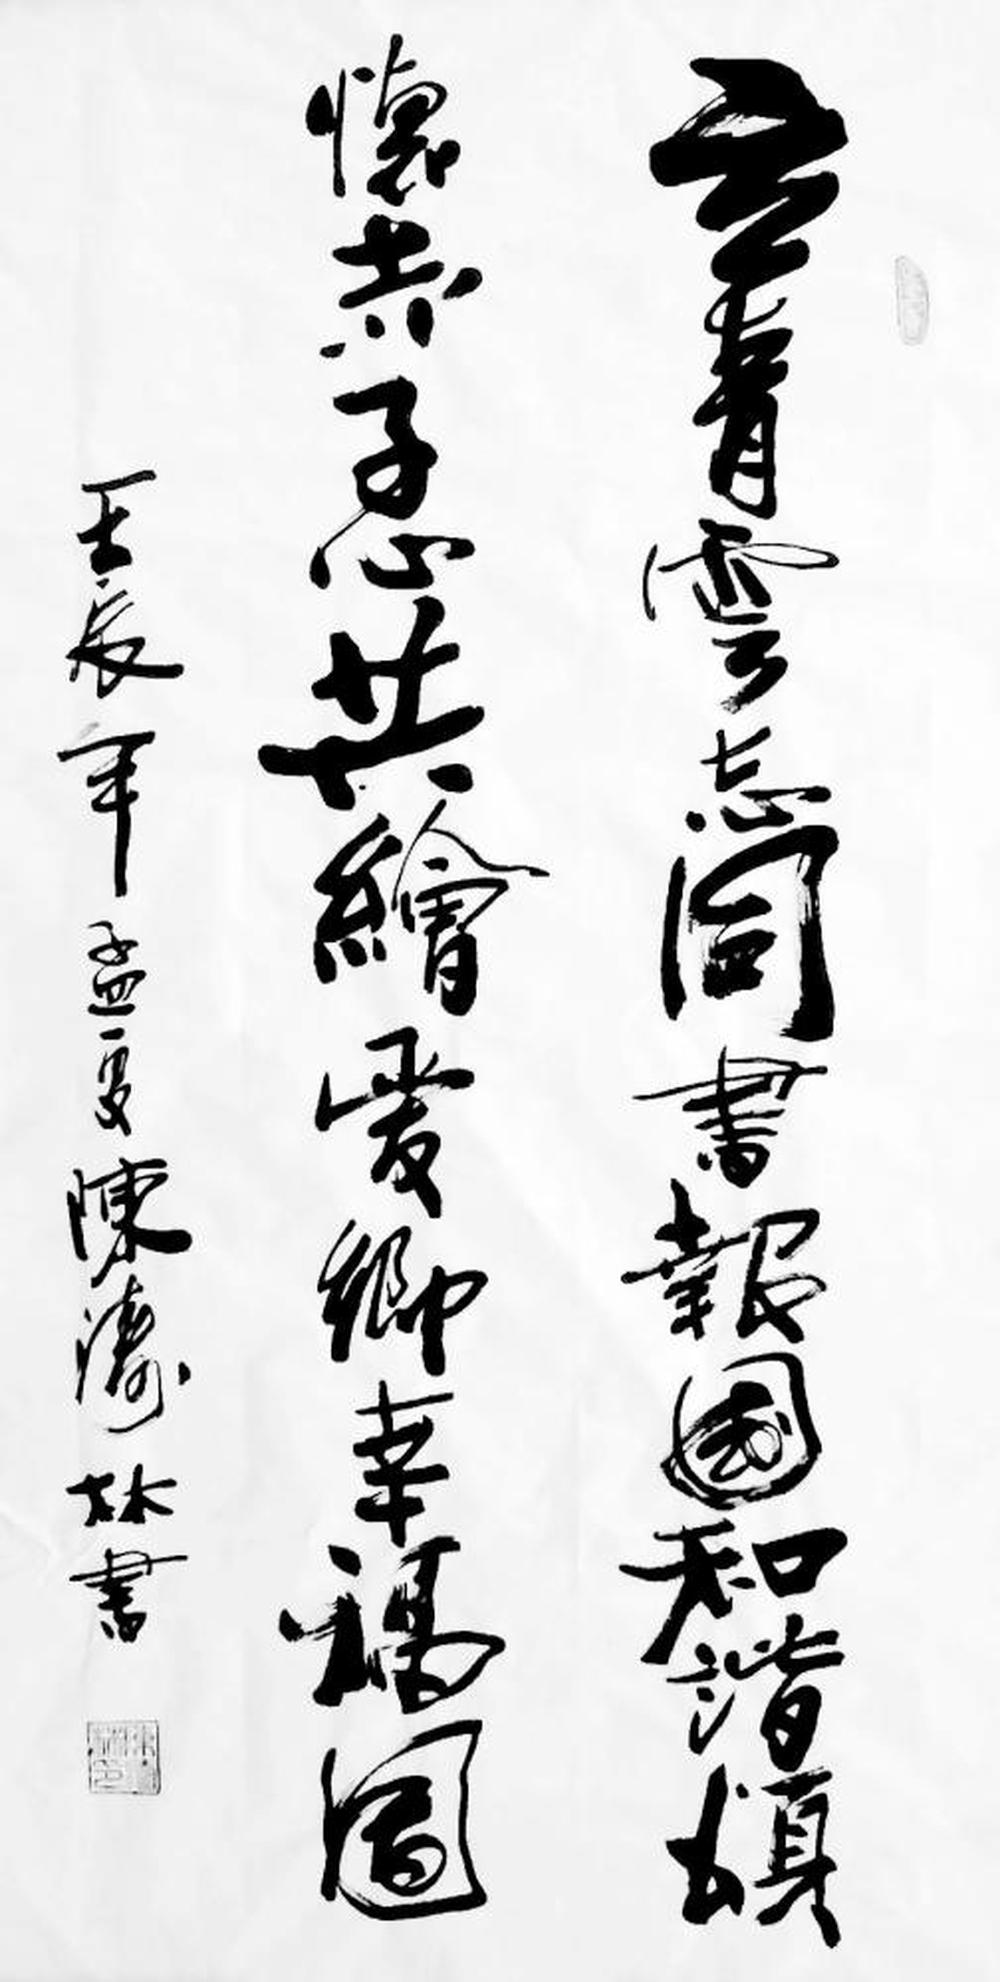 立青雲志同書報國和諧頌
懷赤子心共繪愛鄉幸福圖
壬辰年孟夏陳濤林書